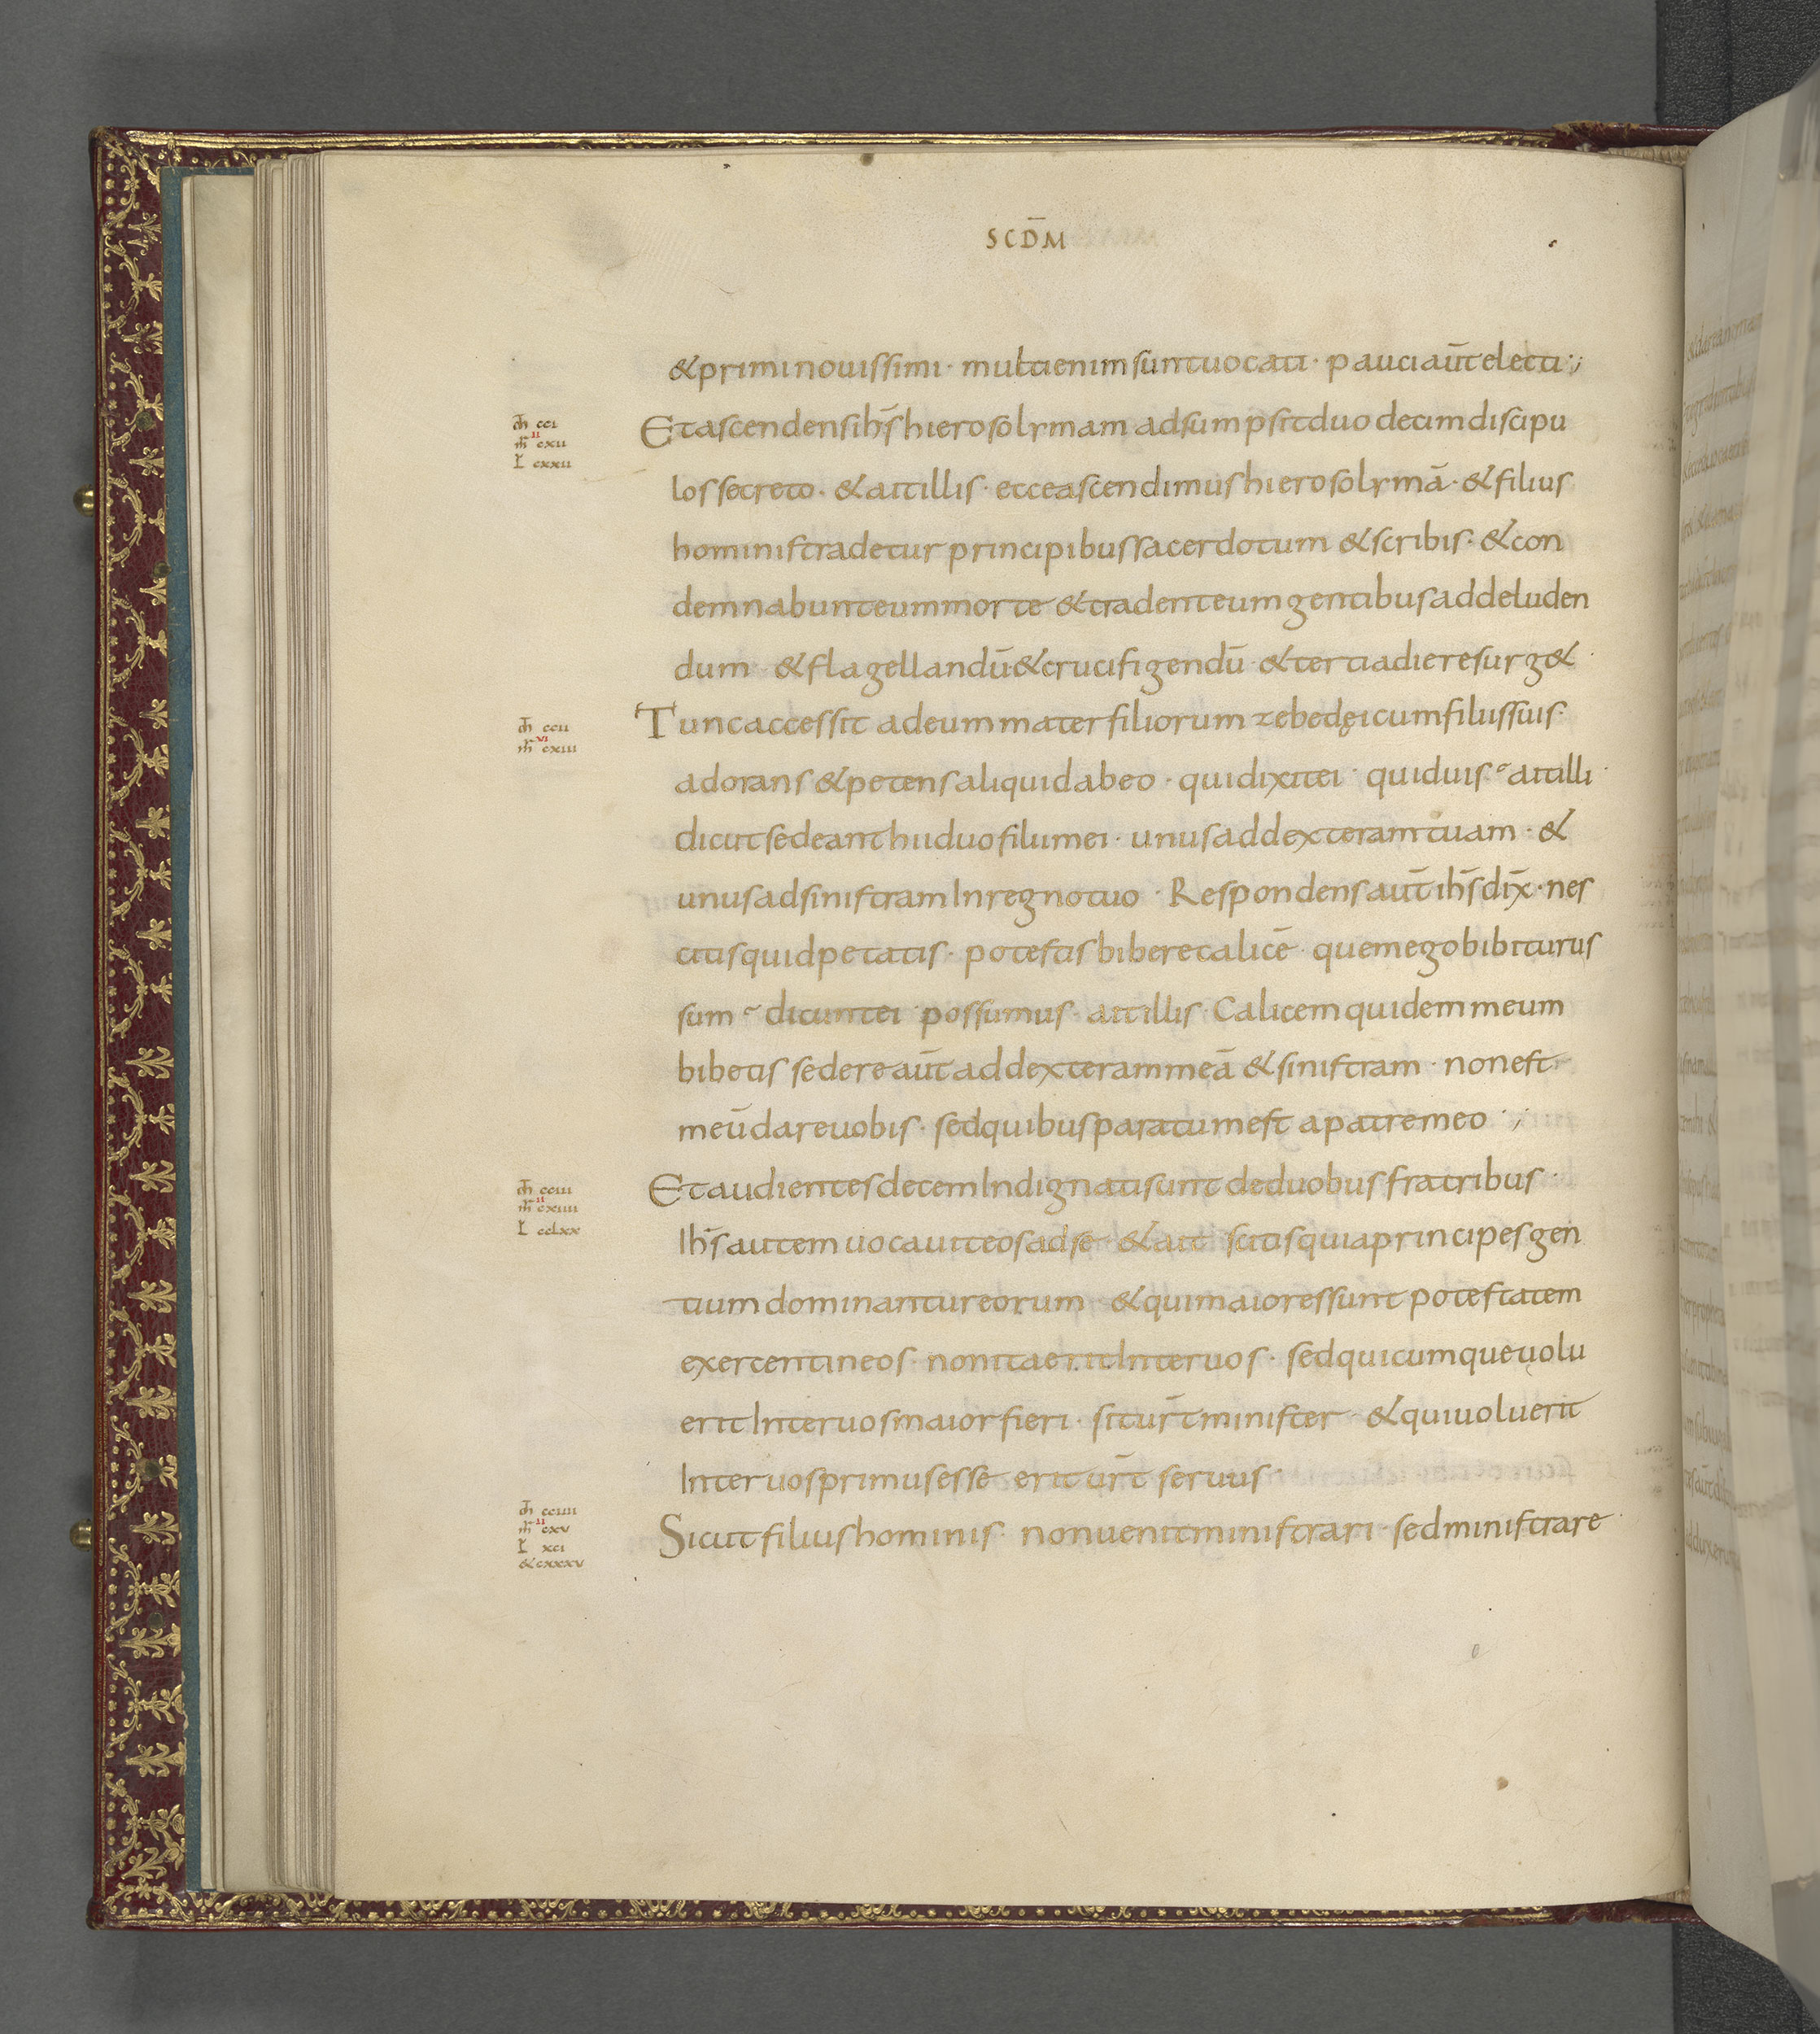 SCD̄M
& primi nouissimi · multi enim sunt uocati · pauci aūt electi ·;
m̄t cci
m̄r cxii
ii
L cxxii
Et ascendens ih̄s hierosolymam adsumpsit duodecim discipu
los secreto · & ait illis · ecce ascendimus hierosolymā · & filius
hominis tradetur principibus sacerdotum & scribis · & con
demnabunt eum morte & tradent eum gentibus ad deluden
dum · & flagellandū & crucifigendū · & tertia die resurg& ·
m̄t ccii
m̄r cxiii
vi
Tunc accessit ad eum mater filiorum zebedęi cum filiis suis ·
adorans & petens aliquid ab eo · qui dixit ei · quid uis · ait illi ·
dic ut sedeant hii duo filii mei · unus ad dexteram tuam · &
unus ad sinistram In regno tuo · Respondens aūt ih̄s dix̄ · nes
citis quid petatis · potestis bibere calicē · quem ego bibiturus
sum dicunt ei possumus · ait illis · Calicem quidem meum
bibetis sedere aūt ad dexteram meā & sinistram · non est
meū dare uobis · sed quibus paratum est a patre meo ·;
m̄t cciii
m̄r cxiiii
ii
L cclxx
Et audientes decem Indignati sunt de duobus fratribus ·
Ih̄s autem uocauit eos ad se · & ait scitis quia principes gen
tium dominantur eorum · & qui maiores sunt potestatem
exercent in eos · non ita erit Inter uos · sed quicumque uolu
erit Inter uos maior fieri · sit ur̄t minister · & qui uoluerit
Inter uos primus esse erit ur̄t seruus ·
m̄t cciiii
m̄r cxv
ii
L xci
& cxxxv
Sicut filius hominis · non uenit ministrari · sed ministrare ·